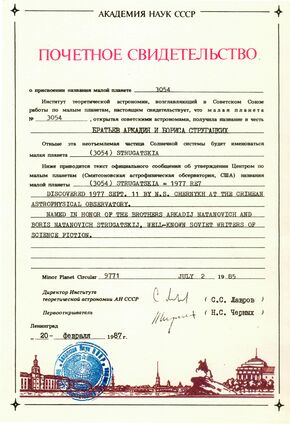 АКАДЕМИЯ НАУК СССР
ПОЧЕТНОЕ СВИДЕТЕЛЬСТВО
о присвоении названия малой планете 3054
Институт теоретической астрономии, возглавляющий в Советском Союзе
работы по малым планетам, настоящим свидетельствует, что малая планета
№ 3054, открытая советскими астрономами, получила название в честь
БРАТЬЕВ АРКАДИЯ И БОРИСА СТРУГАЦКИХ
Отныне эта неотъемлемая частица Солнечной системы будет именоваться
малая планета (3054) STRUGATSKIA
Ниже приводится текст официального сообщения об утверждении Центром по
малым планетам (Смитсоновская астрофизическая обсерватория, США) названия
малой планеты: (3054) STRUGATSKIA = 1977 RE7
DISCOVERED 1977 SEPT. 11 BY N.S. CHERNYKH AT THE CRIMEAN
ASTROPHYSICAL OBSERVATORY.
NAMED IN HONOR OF THE BROTHERS ARKADIJ NATANOVICH AND
BORIS NATANOVICH STRUGATSKIJ, WELL-KNOWN SOVIET WRITERS OF
SCIENCE FICTION.
Minor Planet Circular 9771 JULY 2 1985
Директор Института
теоретической астрономии АН СССР (С.С. Лавров)
Первооткрыватель (Н.С. Черных)
Ленинград
20 февраля 1987г.